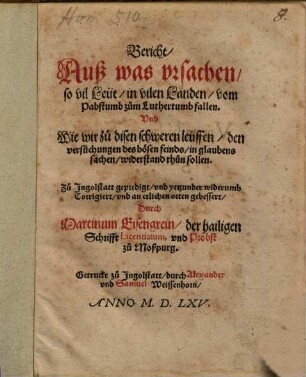 Hom 510.
8.
Bericht/
Auß was vrsachen/
so vil Leüt/ in vilen Landen/ vom
Pabstumb zům Luthertumb fallen.
Vnd
Wie wir zů disen schweren leüffen/ den
versůchungen des bösen feinds/ in glaubens
sachen/ widerstand thůn sollen.
Zů Ingolstatt geprediget/ vnd yetzunder widerumb
Corrigiert/ vnd an etlichen orten gebessert/
Durch
Martinum Eysengrein/ der hailigen
Schrifft Licentiatum, vnd Probst
zů Moßpurg.
Getruckt zů Ingolstatt/ durch Alexander
vnd Samuel Weissenhorn/
ANNO M. D. LXV.